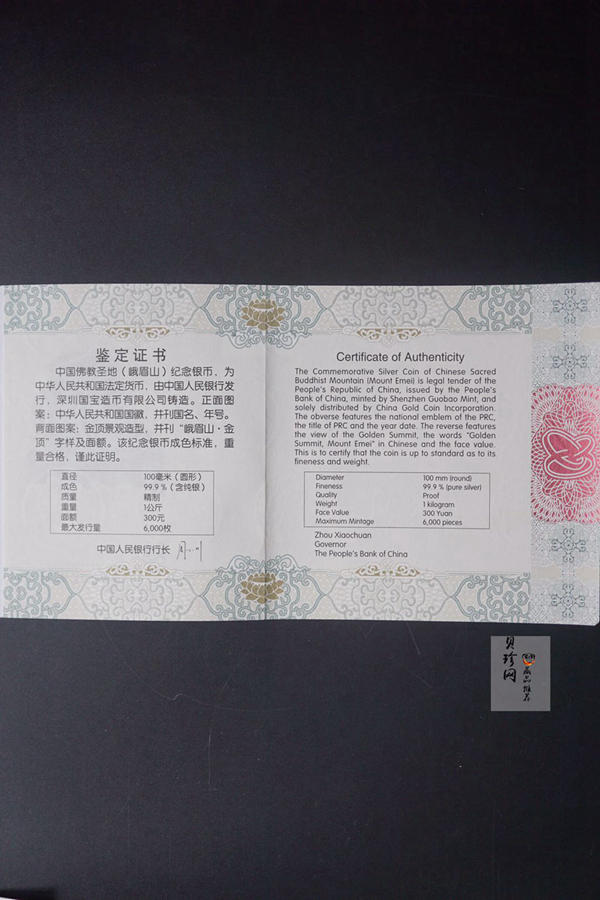 鉴定证书
中国佛教圣地（峨眉山）纪念银币，为
中华人民共和国法定货币，由中国人民银行发
行，深圳国宝造币有限公司铸造。正面图
案：中华人民共和国国徽，并刊国名、年号。
背面图案：金顶景观造型，并刊“峨眉山·金
顶”字样及面额。该纪念银币成色标准，重
量合格，谨此证明。
直径 100毫米（圆形）
成色 99.9％（含纯银）
质量 精制
重量 1公斤
面额 300元
最大发行量 6,000枚
中国人民银行行长
Certificate of Authenticity
The Commemorative Silver Coin of Chinese Sacred
Buddhist Mountain (Mount Emei) is legal tender of the
People's Republic of China, issued by the People's
Bank of China, minted by Shenzhen Guobao Mint, and
solely distributed by China Gold Coin Incorporation.
The obverse features the national emblem of the PRC,
the title of PRC and the year date. The reverse features
the view of the Golden Summit, the words "Golden
Summit, Mount Emei" in Chinese and the face value.
This is to certify that the coin is up to standard as to its
fineness and weight.
Diameter 100 mm (round)
Fineness 99.9 % (pure silver)
Quality Proof
Weight 1 kilogram
Face Value 300 Yuan
Maximum Mintage 6,000 pieces
Zhou Xiaochuan
Governor
The People's Bank of China
贝珍网
藏品推荐